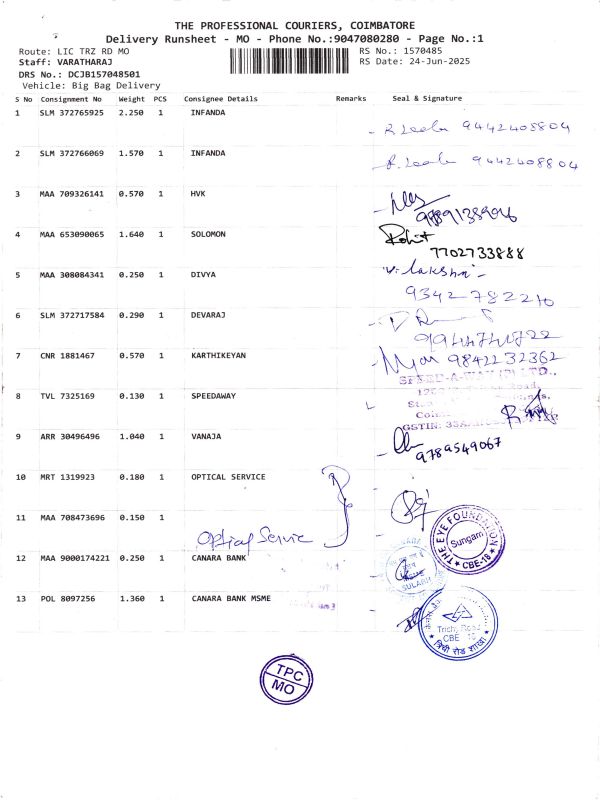 THE PROFESSIONAL COURIERS, COIMBATORE
Delivery Runsheet - MO - Phone No.:9047080280 - Page No.:1
Route: LIC TRZ RD MO
RS No.: 1570485
Staff: VARATHARAJ
RS Date: 24-Jun-2025
DRS No.: DCJB157048501
Vehicle: Big Bag Delivery
S No Consignment No Weight PCS Consignee Details Remarks Seal & Signature
1 SLM 372765925 2.250 1 INFANDA
9442408804
2 SLM 372766069 1.570 1 INFANDA
9442408804
3 MAA 709326141 0.570 1 HVK
4 MAA 653090065 1.640 1 SOLOMON
Rohit
7702733888
5 MAA 308084341 0.250 1 DIVYA
9342782210
6 SLM 372717584 0.290 1 DEVARAJ
7 CNR 1881467 0.570 1 KARTHIKEYAN
9842232362
8 TVL 7325169 0.130 1 SPEEDAWAY
9 ARR 30496496 1.040 1 VANAJA
9789549067
10 MRT 1319923 0.180 1 OPTICAL SERVICE
11 MAA 708473696 0.150 1
Optical Service
THE EYE FOUNDATION
Sungam
CBE-18
12 MAA 9000174221 0.250 1 CANARA BANK
13 POL 8097256 1.360 1 CANARA BANK MSME
Trichy Road
CBE
त्रिची रोड शाखा
TPC
MO